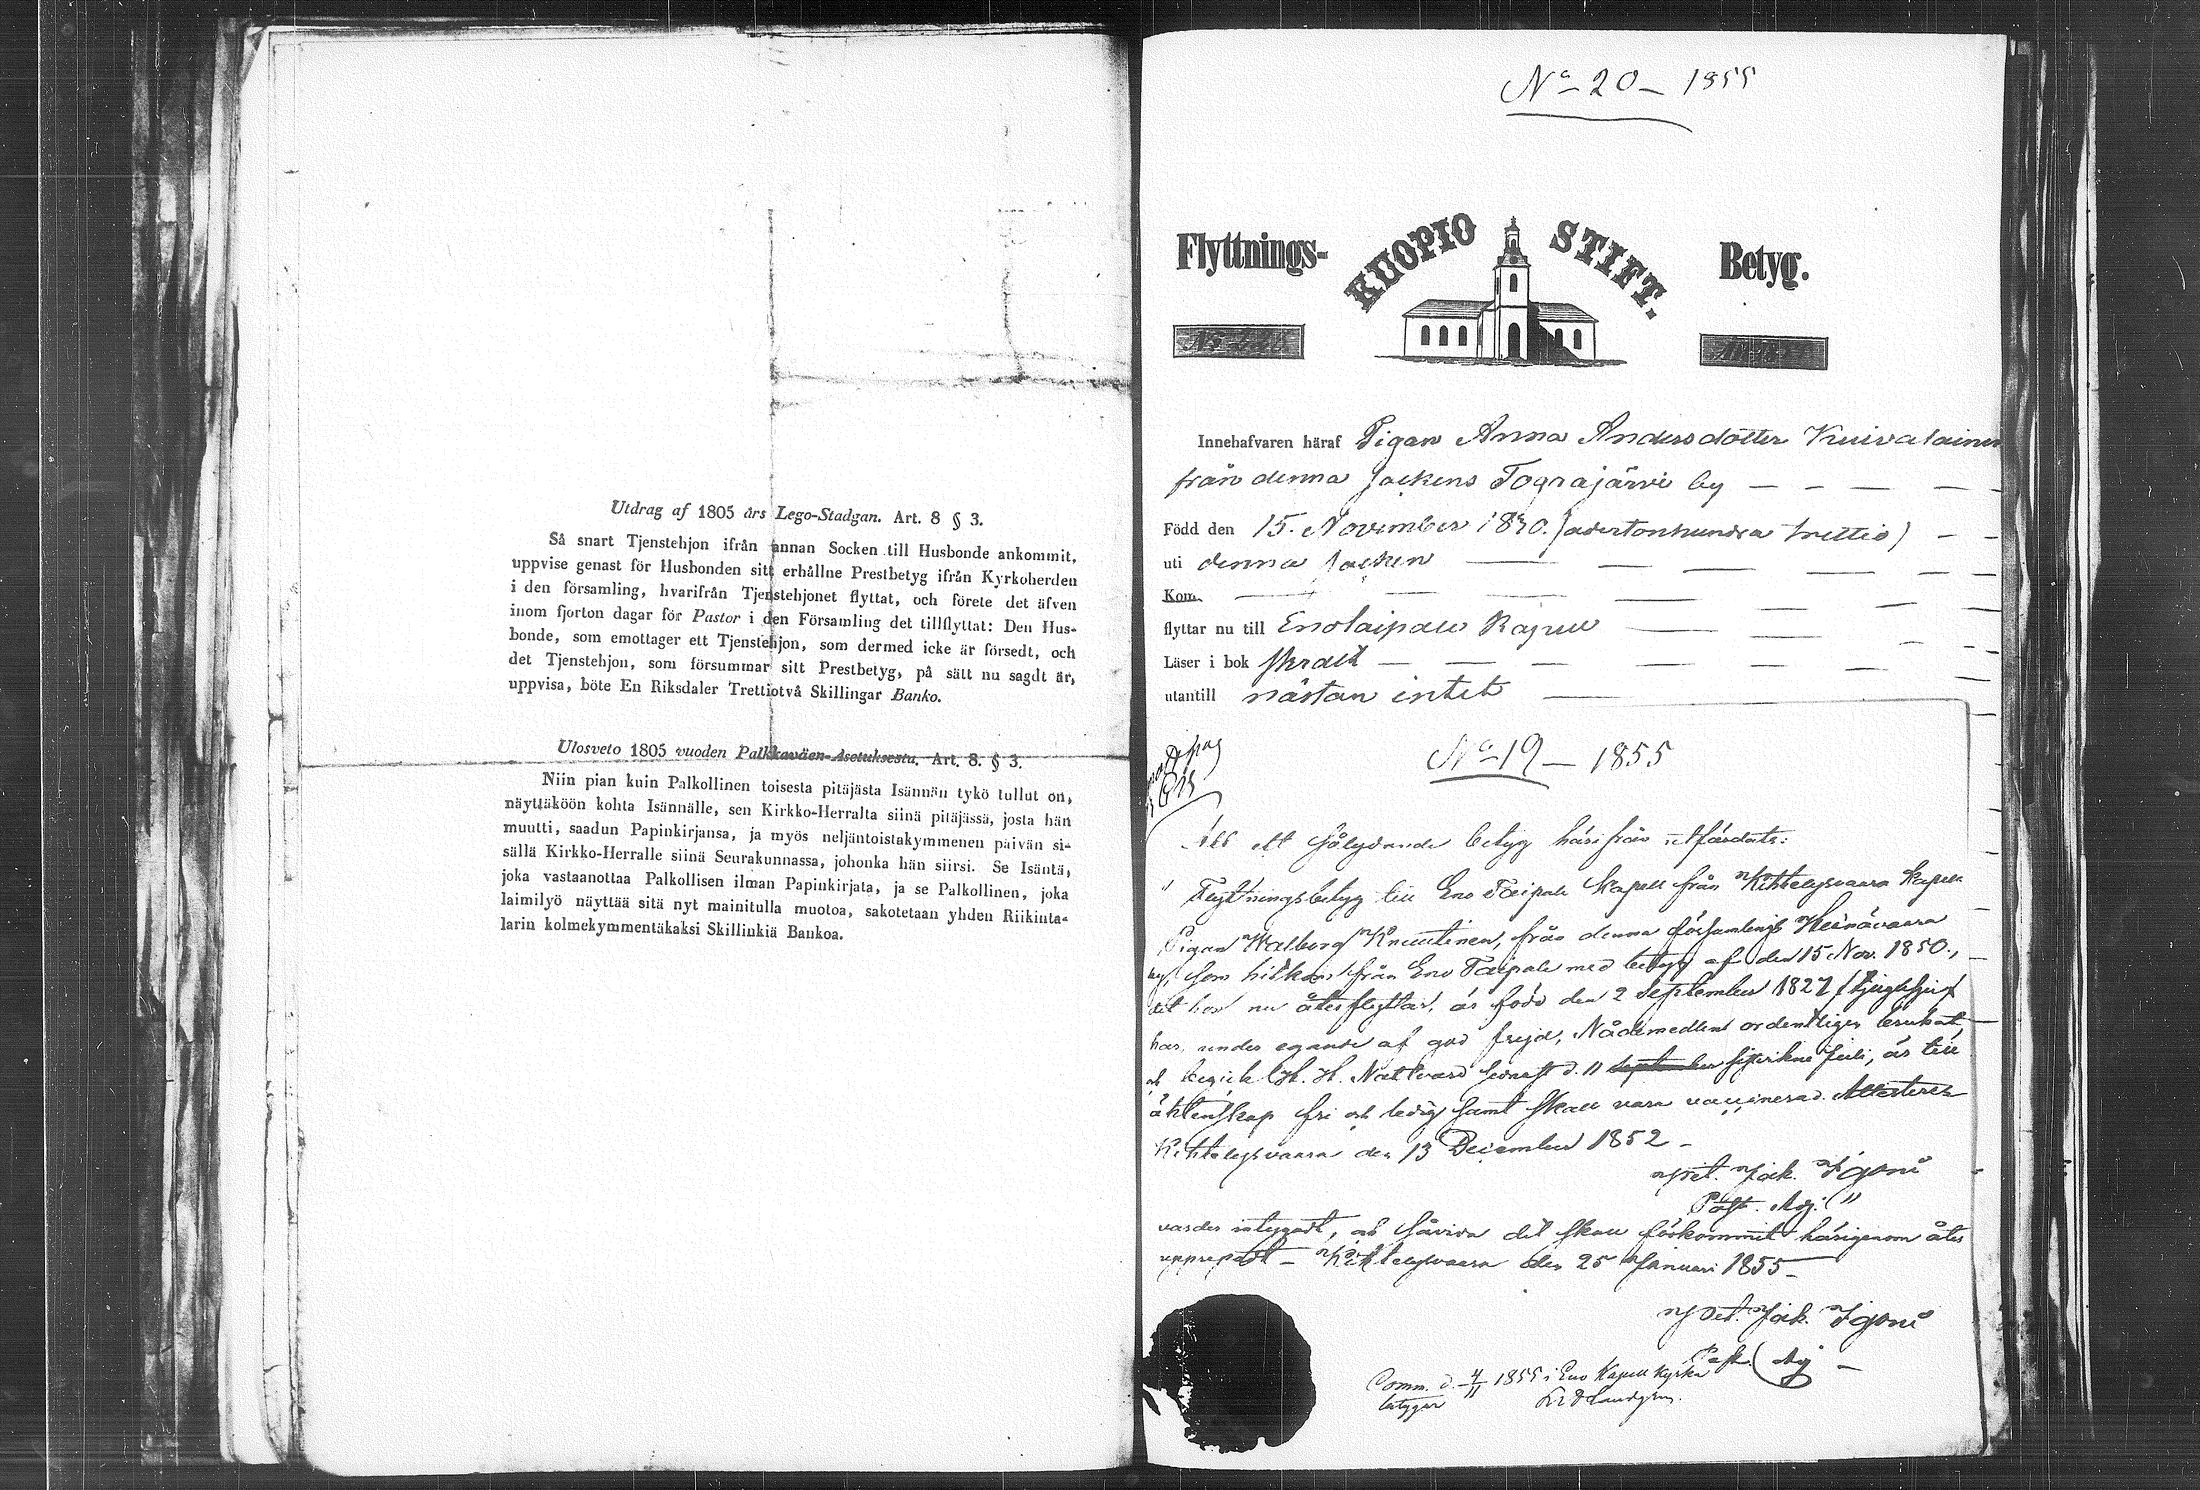 Utdrag af 1805 års Lego-Stadgan. Art. 8 § 3.
Så snart Tjenstehjon ifrån annan Socken till Husbonde ankommit,
uppvise genast för Husbonden sitt erhållne Prestbetyg ifrån Kyrkoherden
i den församling, hvarifrån Tjenstehjonet flyttat, och förete det äfven
inom fjorton dagar för Pastor i den Församling det tillflyttat: Den Hus-
bonde, som emottager ett Tjenstehjon, som dermed icke är försedt, och
det Tjenstehjon, som försummar sitt Prestbetyg, på sätt nu sagdt är,
uppvisa, böte En Riksdaler Trettiotvå Skillingar Banko.
Ulosveto 1805 vuoden Palkkaväen-Asetuksesta. Art. 8. § 3.
Niin pian kuin Palkollinen toisesta pitäjästa Isännän tykö tullut on,
näyttäköön kohta Isännälle, sen Kirkko-Herralta siinä pitäjässä, josta hän
muutti, saadun Papinkirjansa, ja myös neljäntoistakymmenen päivän si-
sällä Kirkko-Herralle siinä Seurakunnassa, johonka hän siirsi. Se Isäntä,
joka vastaanottaa Palkollisen ilman Papinkirjata, ja se Palkollinen, joka
laimilyö näyttää sitä nyt mainitulla muotoa, sakotetaan yhden Riikinta-
larin kolmekymmentäkaksi Skillinkiä Bankoa.
No 20 - 1855
Flyttnings- KUOPIO STIFT. Betyg.
Innehafvaren häraf Pigan Anna Andersdotter Kuivalainen
från denna Sockens Tograjärvi by
Född den 15. November 1830. (adertonhundra trettio)
uti denna Socken
Kom
flyttar nu till Eno Taipale Kapell
Läser i bok svagt
utantill nästan intet
No 19 - 1855
Att ett sålydande betyg härifrån utfärdats:
" Flyttningsbetyg till Eno Taipale Kapell från Kihtelysvaara Kapell
Pigan Walborg Knuutinen, från denna församlings Heinävaara
by, som hitkom från Eno Taipale med betyg af den 15 Nov. 1850,
dit hon nu återflyttar, är född den 2 September 1827 (tjugusju)
har, under egande af god frejd, Nådemedlen ordentligen brukat,
och begick H. H. Nattvard sednast d. 11 september sistvikne Juli, är till
äktenskap fri och ledig samt skall vara vaccinerad. Attesteres
Kihtelysvaara den 13 December 1852 -
Past. Adj. "
varder intygadt, och såvida det skall förkommit härigenom åter
upprepadt - Kihtelysvaara den 25 Januari 1855 -
Past. Adj
Comm. d. 4/11 1855 i Eno Kapell kyrka
betygar